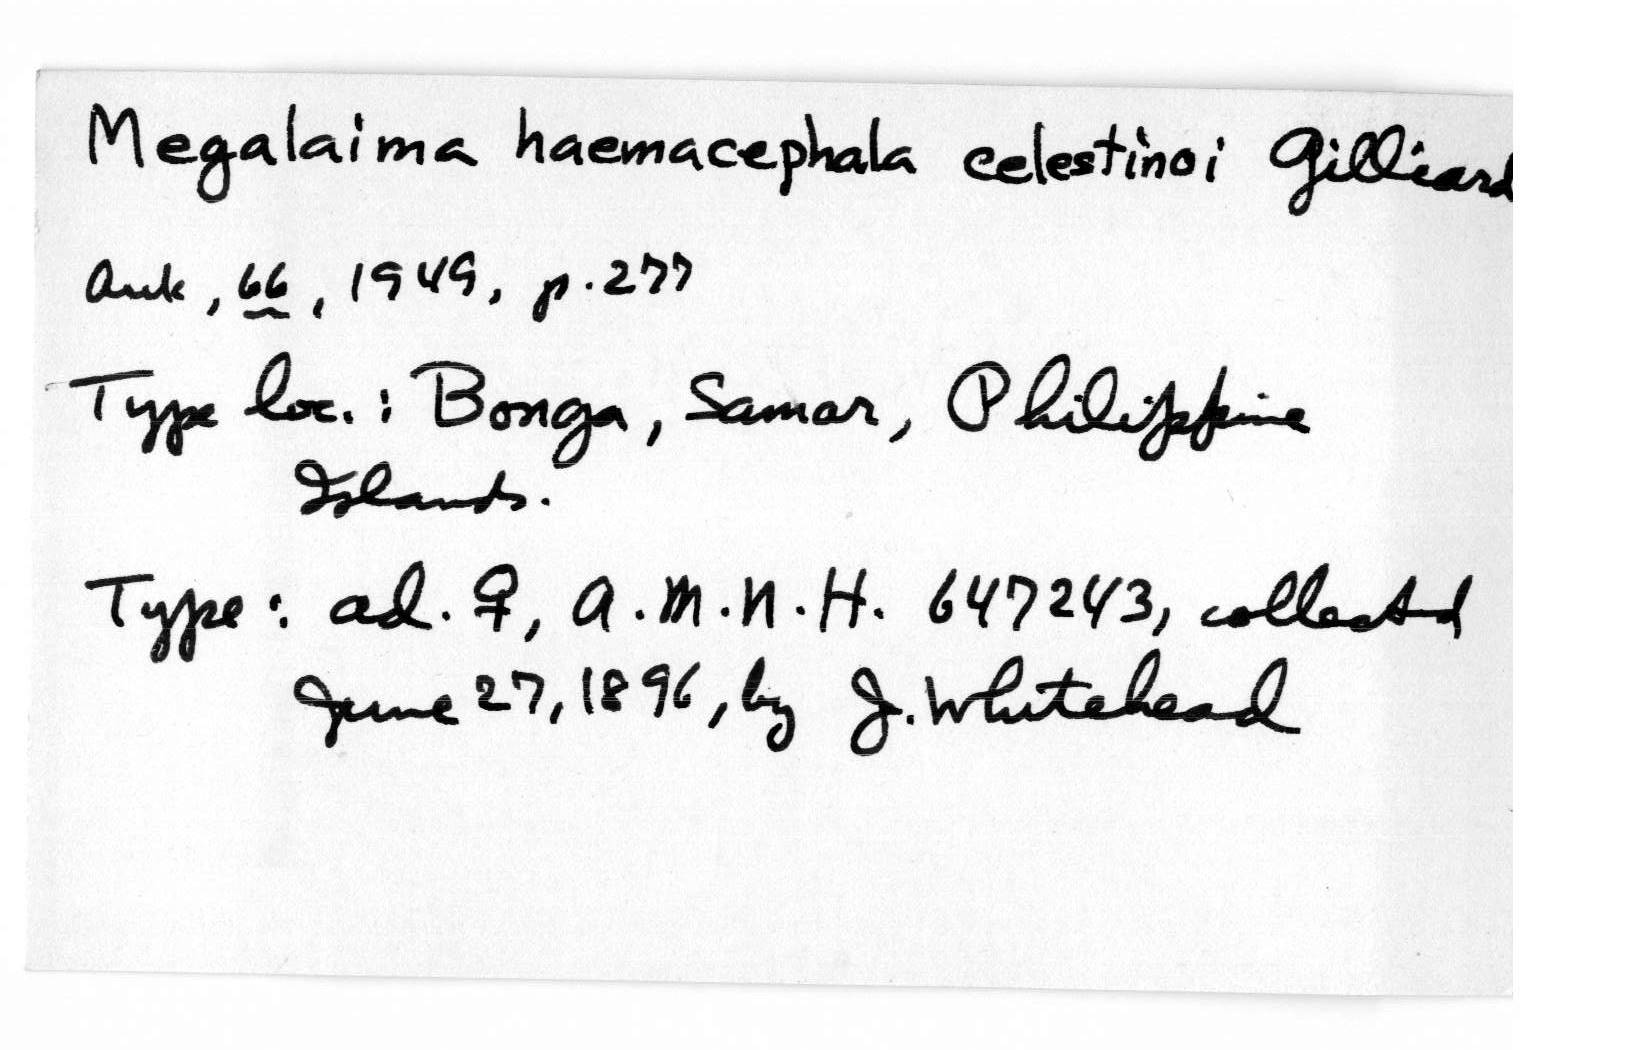 Megalaima haemacephala celestinoi Gilliard
Auk, 66, 1949, p. 277
Type loc.: Bonga, Samar, Philippine
Islands.
Type: ad. ♀, A.M.N.H. 647243, collected
June 27, 1896, by J. Whitehead